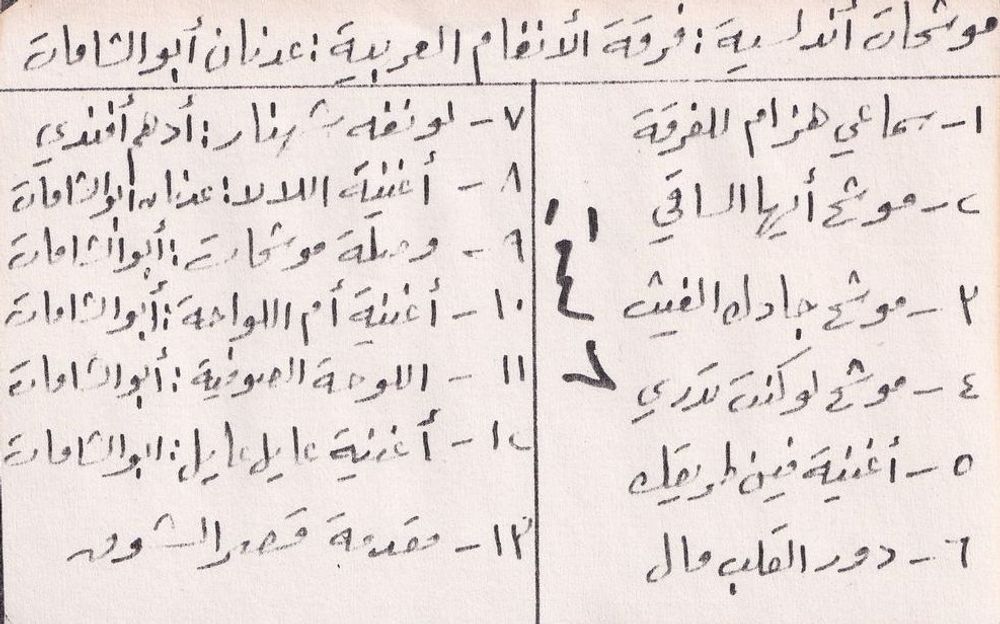 موشحات أندلسية : فرقة الأنغام العربية : عدنان أبو الشامات
١- سماعي هزام للفرقة
٢- موشح أيها الساقي
٣- موشح جادك الغيث
٤- موشح لو كنت تدري
٥- أغنية فين طريقك
٦- دور القلب مال
٧- لونغه شهناز : أدهم أفندي
٨- أغنية اللالا : عدنان أبو الشامات
٩- وصلة موشحات : أبو الشامات
١٠- أغنية أم اللواحة : أبو الشامات
١١- اللوحة الصوفية : أبو الشامات
١٢- أغنية عايل عايل : ابو الشامات
١٣- مقدمة قصر الشوق